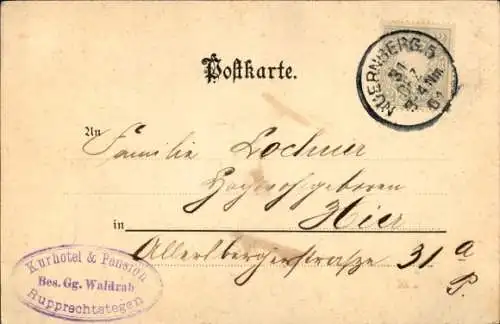 NUERNBERG. 5
31
DEZ
3-4 Nm.
01
Postkarte.
An
Familie Lochner
Hochwohlgeboren
in Hier
Allersbergerstraße 31 a
P.
Kurhotel & Pension
Bes. Gg. Waldrab
Rupprechtstegen